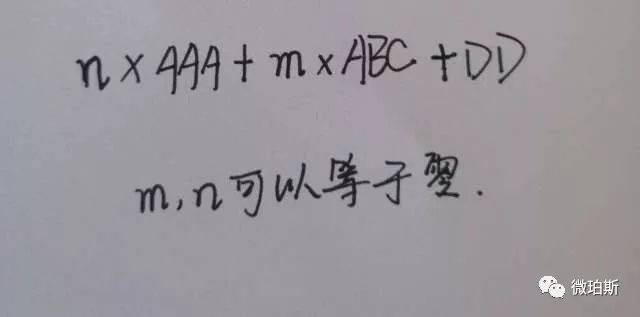 n×AAA+m×ABC+DD
m,n可以等于零.
微珀斯